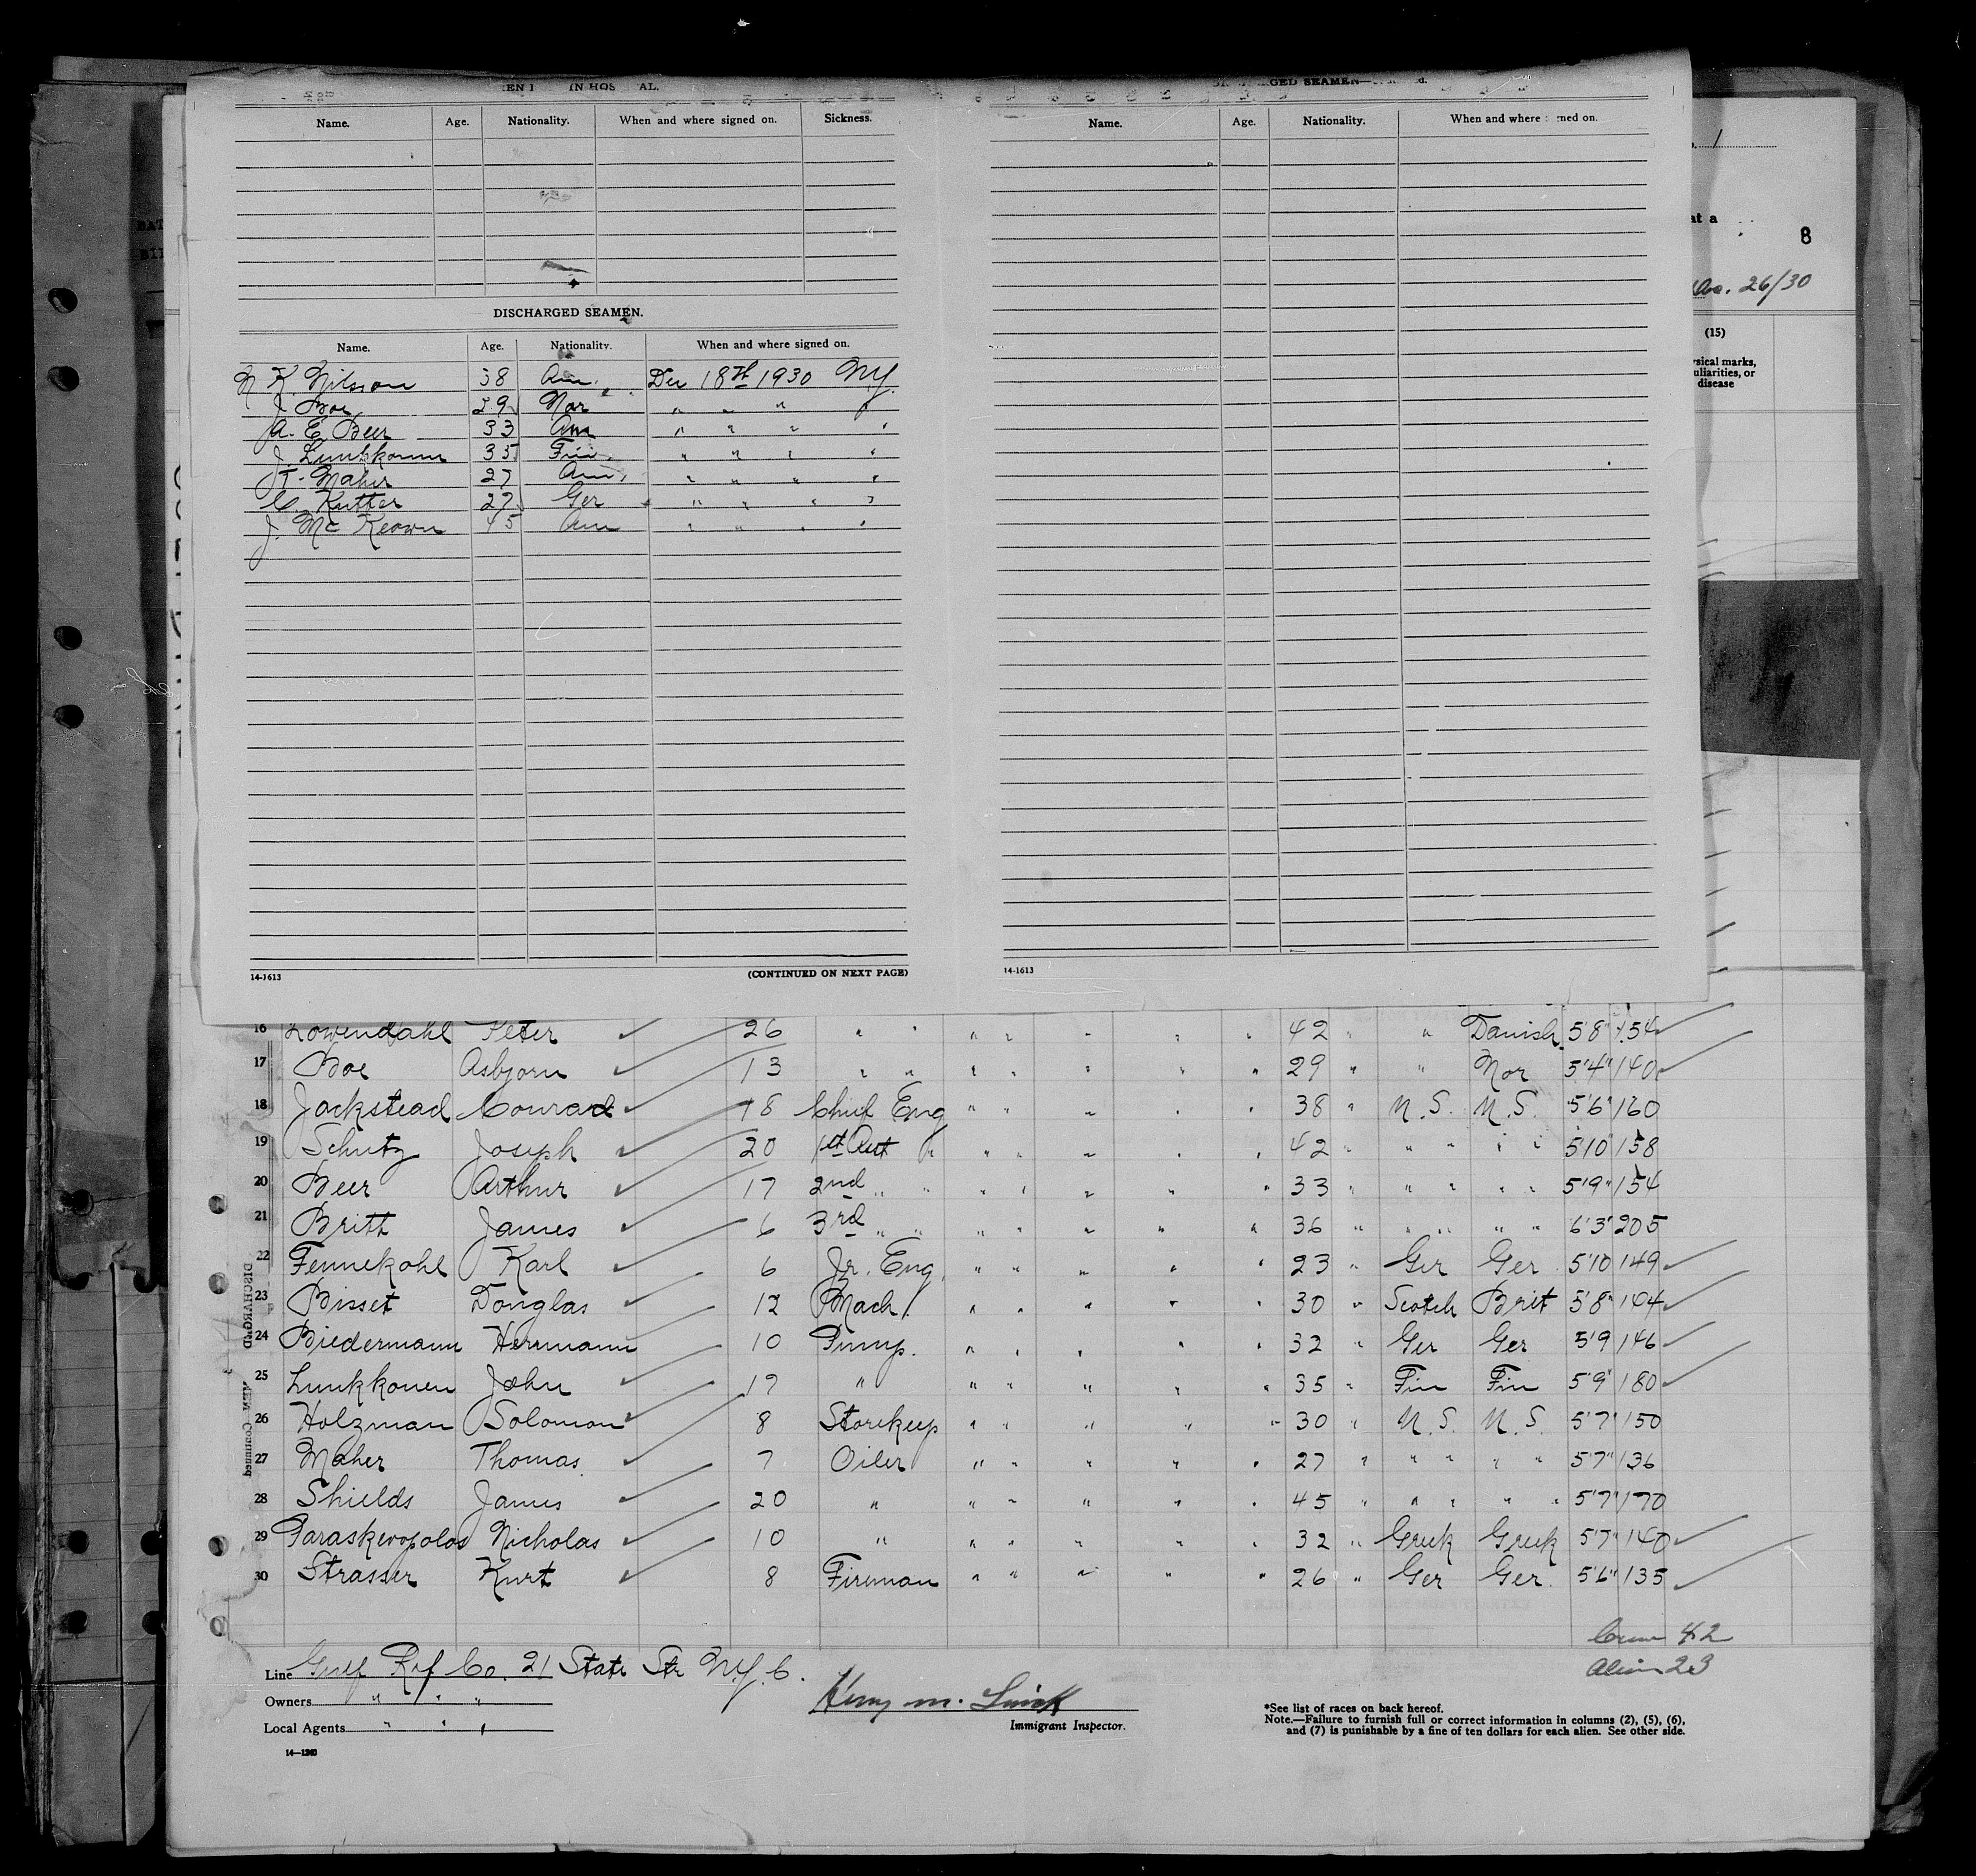 IN HOS AL.
GED SEAMEN—
Name. Age. Nationality. When and where signed on. Sickness.
Name. Age. Nationality. When and where ned on.
DISCHARGED SEAMEN.
Name. Age. Nationality. When and where signed on.
N K. Nilsson 38 Am. Dec 18th 1930 N.Y.
J Boe 29 Nor " " " "
A. E Beer 33 Am " " " "
J. Lunkkonen 35 Fin. " " " "
T. Maher 27 Am. " " " "
C. Kutter 27 Ger " " " "
J. Mc Keown 45 Am " " " "
14-1613 (CONTINUED ON NEXT PAGE)
14-1613
1
at a
8
26/30
(15)
ysical marks,
uliarities, or
disease
16 Lowendahl Peter 26 " " " " " " " 42 " " Danish 5'8" 154
17 Boe Asbjorn 13 " " " " " " " 29 " " Nor 5'4" 140
18 Jackstead Conrad 18 Chief Eng " " " " " 38 " U.S. U.S. 5'6" 160
19 Schutz Joseph 20 1st Asst " " " " " 42 " " " " " 5'10 158
20 Beer Arthur 17 2nd " " " " " " " 33 " " " " " 5'9" 154
21 Britt James 6 3rd " " " " " " " 36 " " " " " 6'3" 205
22 Fennekohl Karl 6 Jr. Eng. " " " " " 23 " Ger Ger 5'10 149
23 Bisset Douglas 12 Mach. " " " " " 30 " Scotch Brit 5'8" 164
24 Biedermann Hermann 10 Pump. " " " " " 32 " Ger Ger 5'9 146
25 Lunkkonen John 19 " " " " " " 35 " Fin Fin 5'9" 180
26 Holzman Solomon 8 Storekeep " " " " " 30 " U.S. U.S. 5'7" 150
27 Maher Thomas 7 Oiler " " " " " 27 " " " " " 5'7" 136
28 Shields James 20 " " " " " " 45 " " " " " 5'7" 170
29 Paraskevopolos Nicholas 10 " " " " " " 32 " Greek Greek 5'7" 140
30 Strasser Kurt 8 Fireman " " " " " 26 " Ger Ger. 5'6" 135
Crew 42
Alien 23
Line Gulf Ref Co. 21 State Str N.Y.C.
Owners " " "
Local Agents " " "
14—1240
Henry M.
Immigrant Inspector.
*See list of races on back hereof.
Note.—Failure to furnish full or correct information in columns (2), (5), (6),
and (7) is punishable by a fine of ten dollars for each alien. See other side.